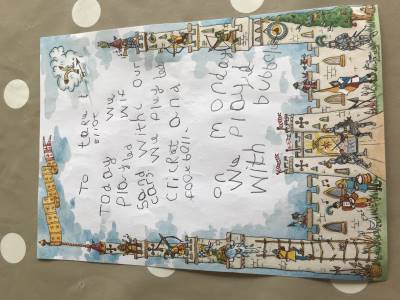 To
Today we
Played wit
Sand with our
cars We Played
cricket and
football.
on monday
We Played
With